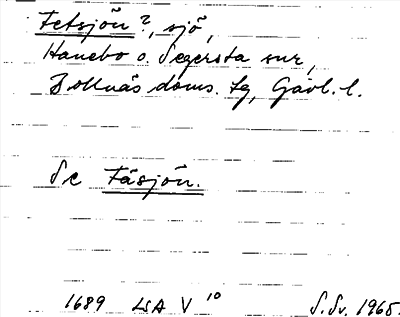 Fetsjön?, sjö,
Hanebo o. Segersta snr,
Bollnäs doms. tg, Gävl. l.
Se Fäsjön.
1689 LSA V 10 S.Sv. 1965.